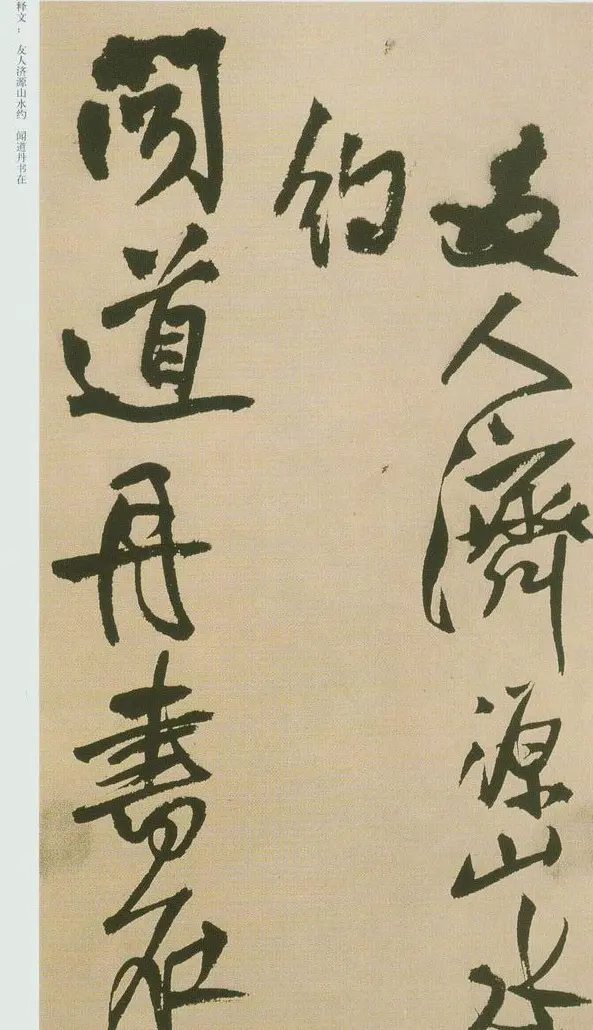 释文： 友人济源山水约 闻道丹书在
友人濟源山水
約
聞道丹書在